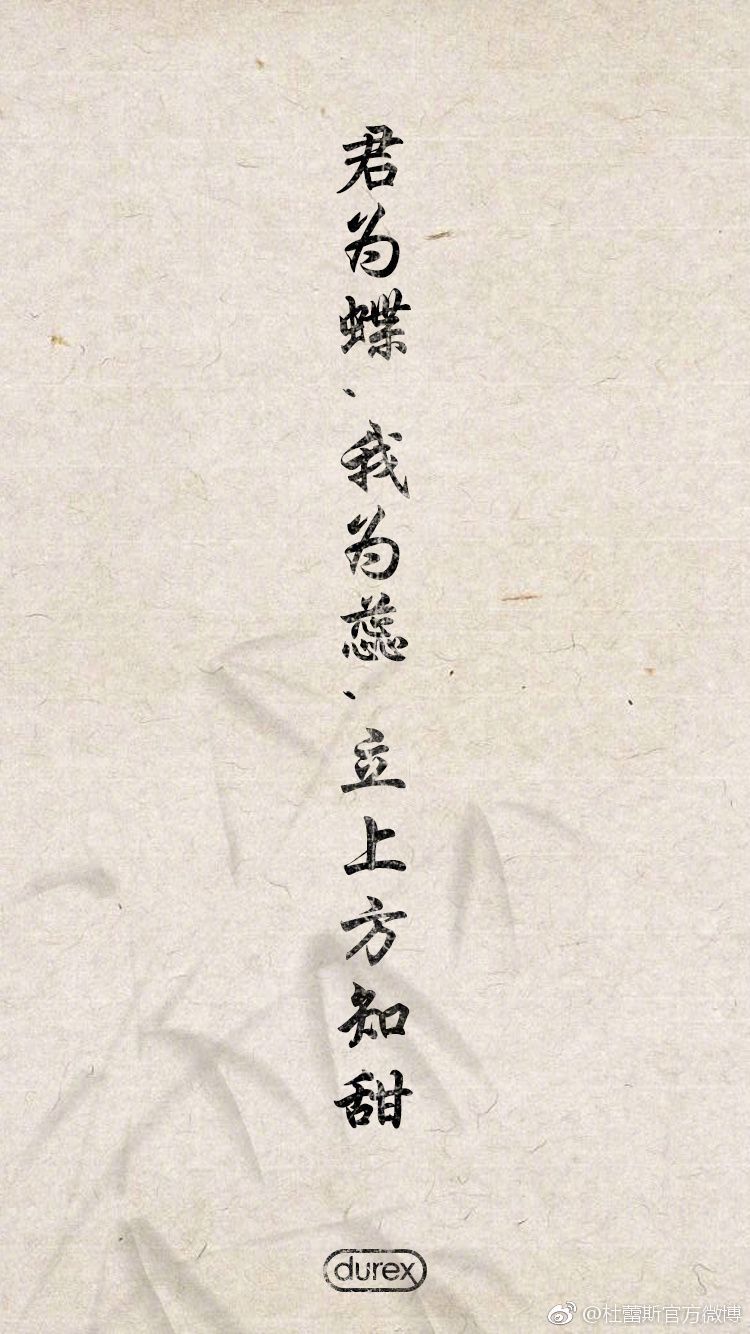 君为蝶、我为蕊、立上方知甜
durex
@杜蕾斯官方微博